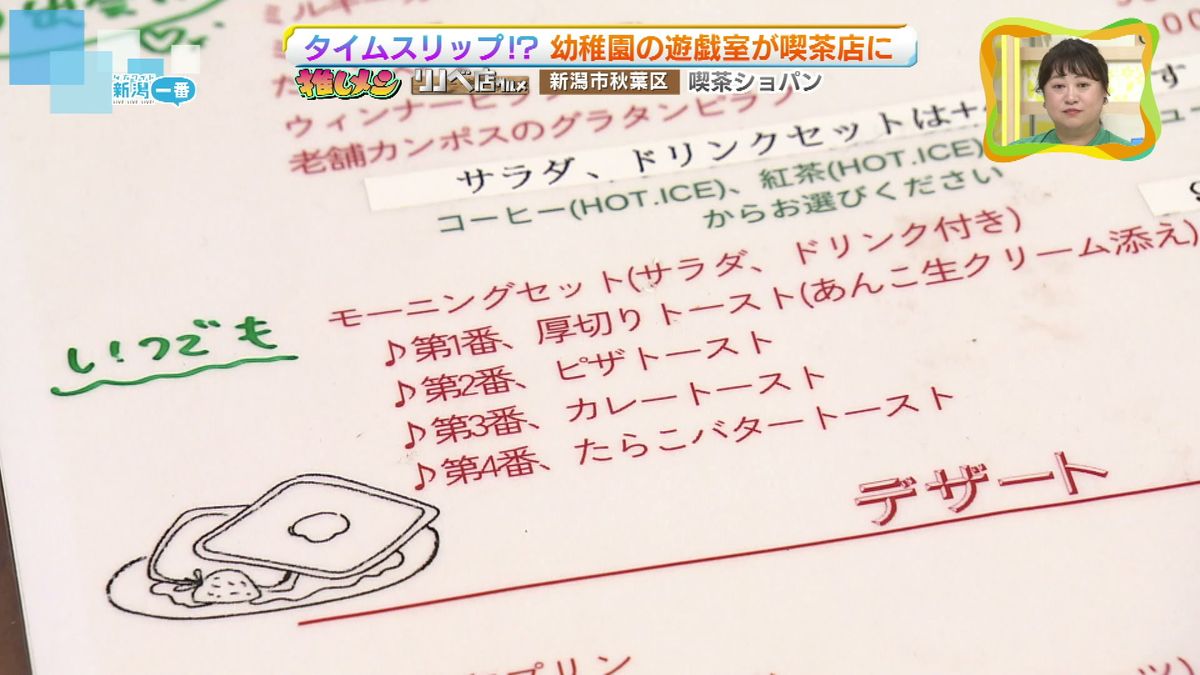 タイムスリップ!? 幼稚園の遊戯室が喫茶店に
推しメン リノベ店グルメ 新潟市秋葉区 喫茶ショパン
新潟一番
ウィンナーピラフ
老舗カンポスのグラタンピラフ
サラダ、ドリンクセットは+
コーヒー(HOT.ICE)、紅茶(HOT.ICE)
からお選びください
モーニングセット(サラダ、ドリンク付き)
いつでも
♪第1番、厚切りトースト(あんこ生クリーム添え)
♪第2番、ピザトースト
♪第3番、カレートースト
♪第4番、たらこバタートースト
デザート
プリン